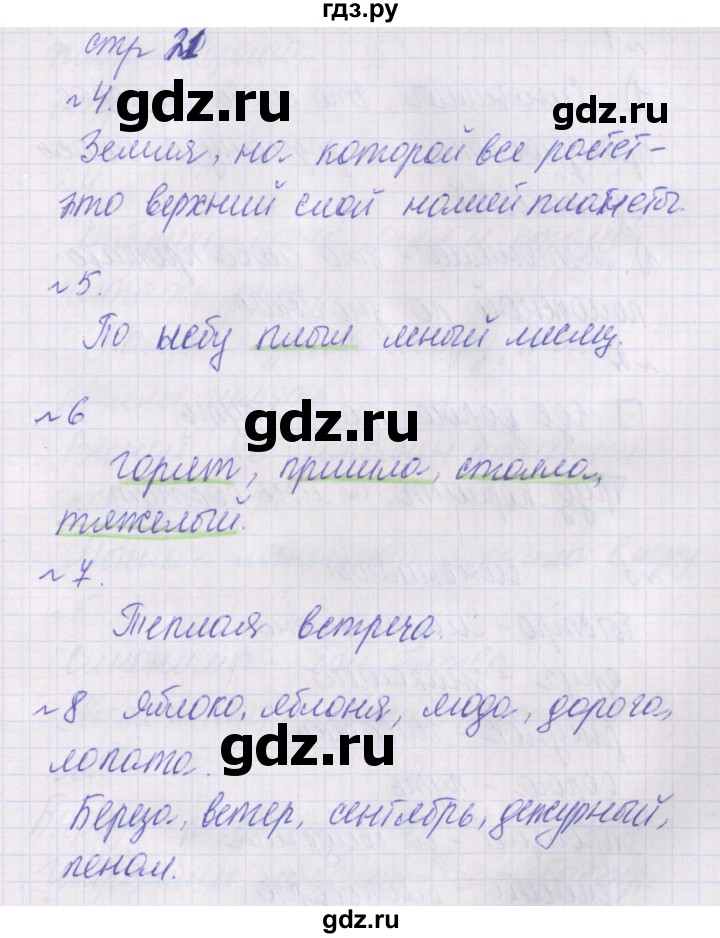 гдз.ру
стр 21
№4.
gdz.ru
gdz.ru
Земля, на которой все растет-
это верхний слой нашей планеты.
№5.
По небу плыл ясный месяц.
№6
gdz.ru
горит, пришла, стояла,
тяжелый.
№7.
Теплая встреча.
№8 Яблоко, яблоня, мода, дорога,
gdz.ru
лопата.
Береза, ветер, сентябрь, дежурный,
пенал.
gdz.ru